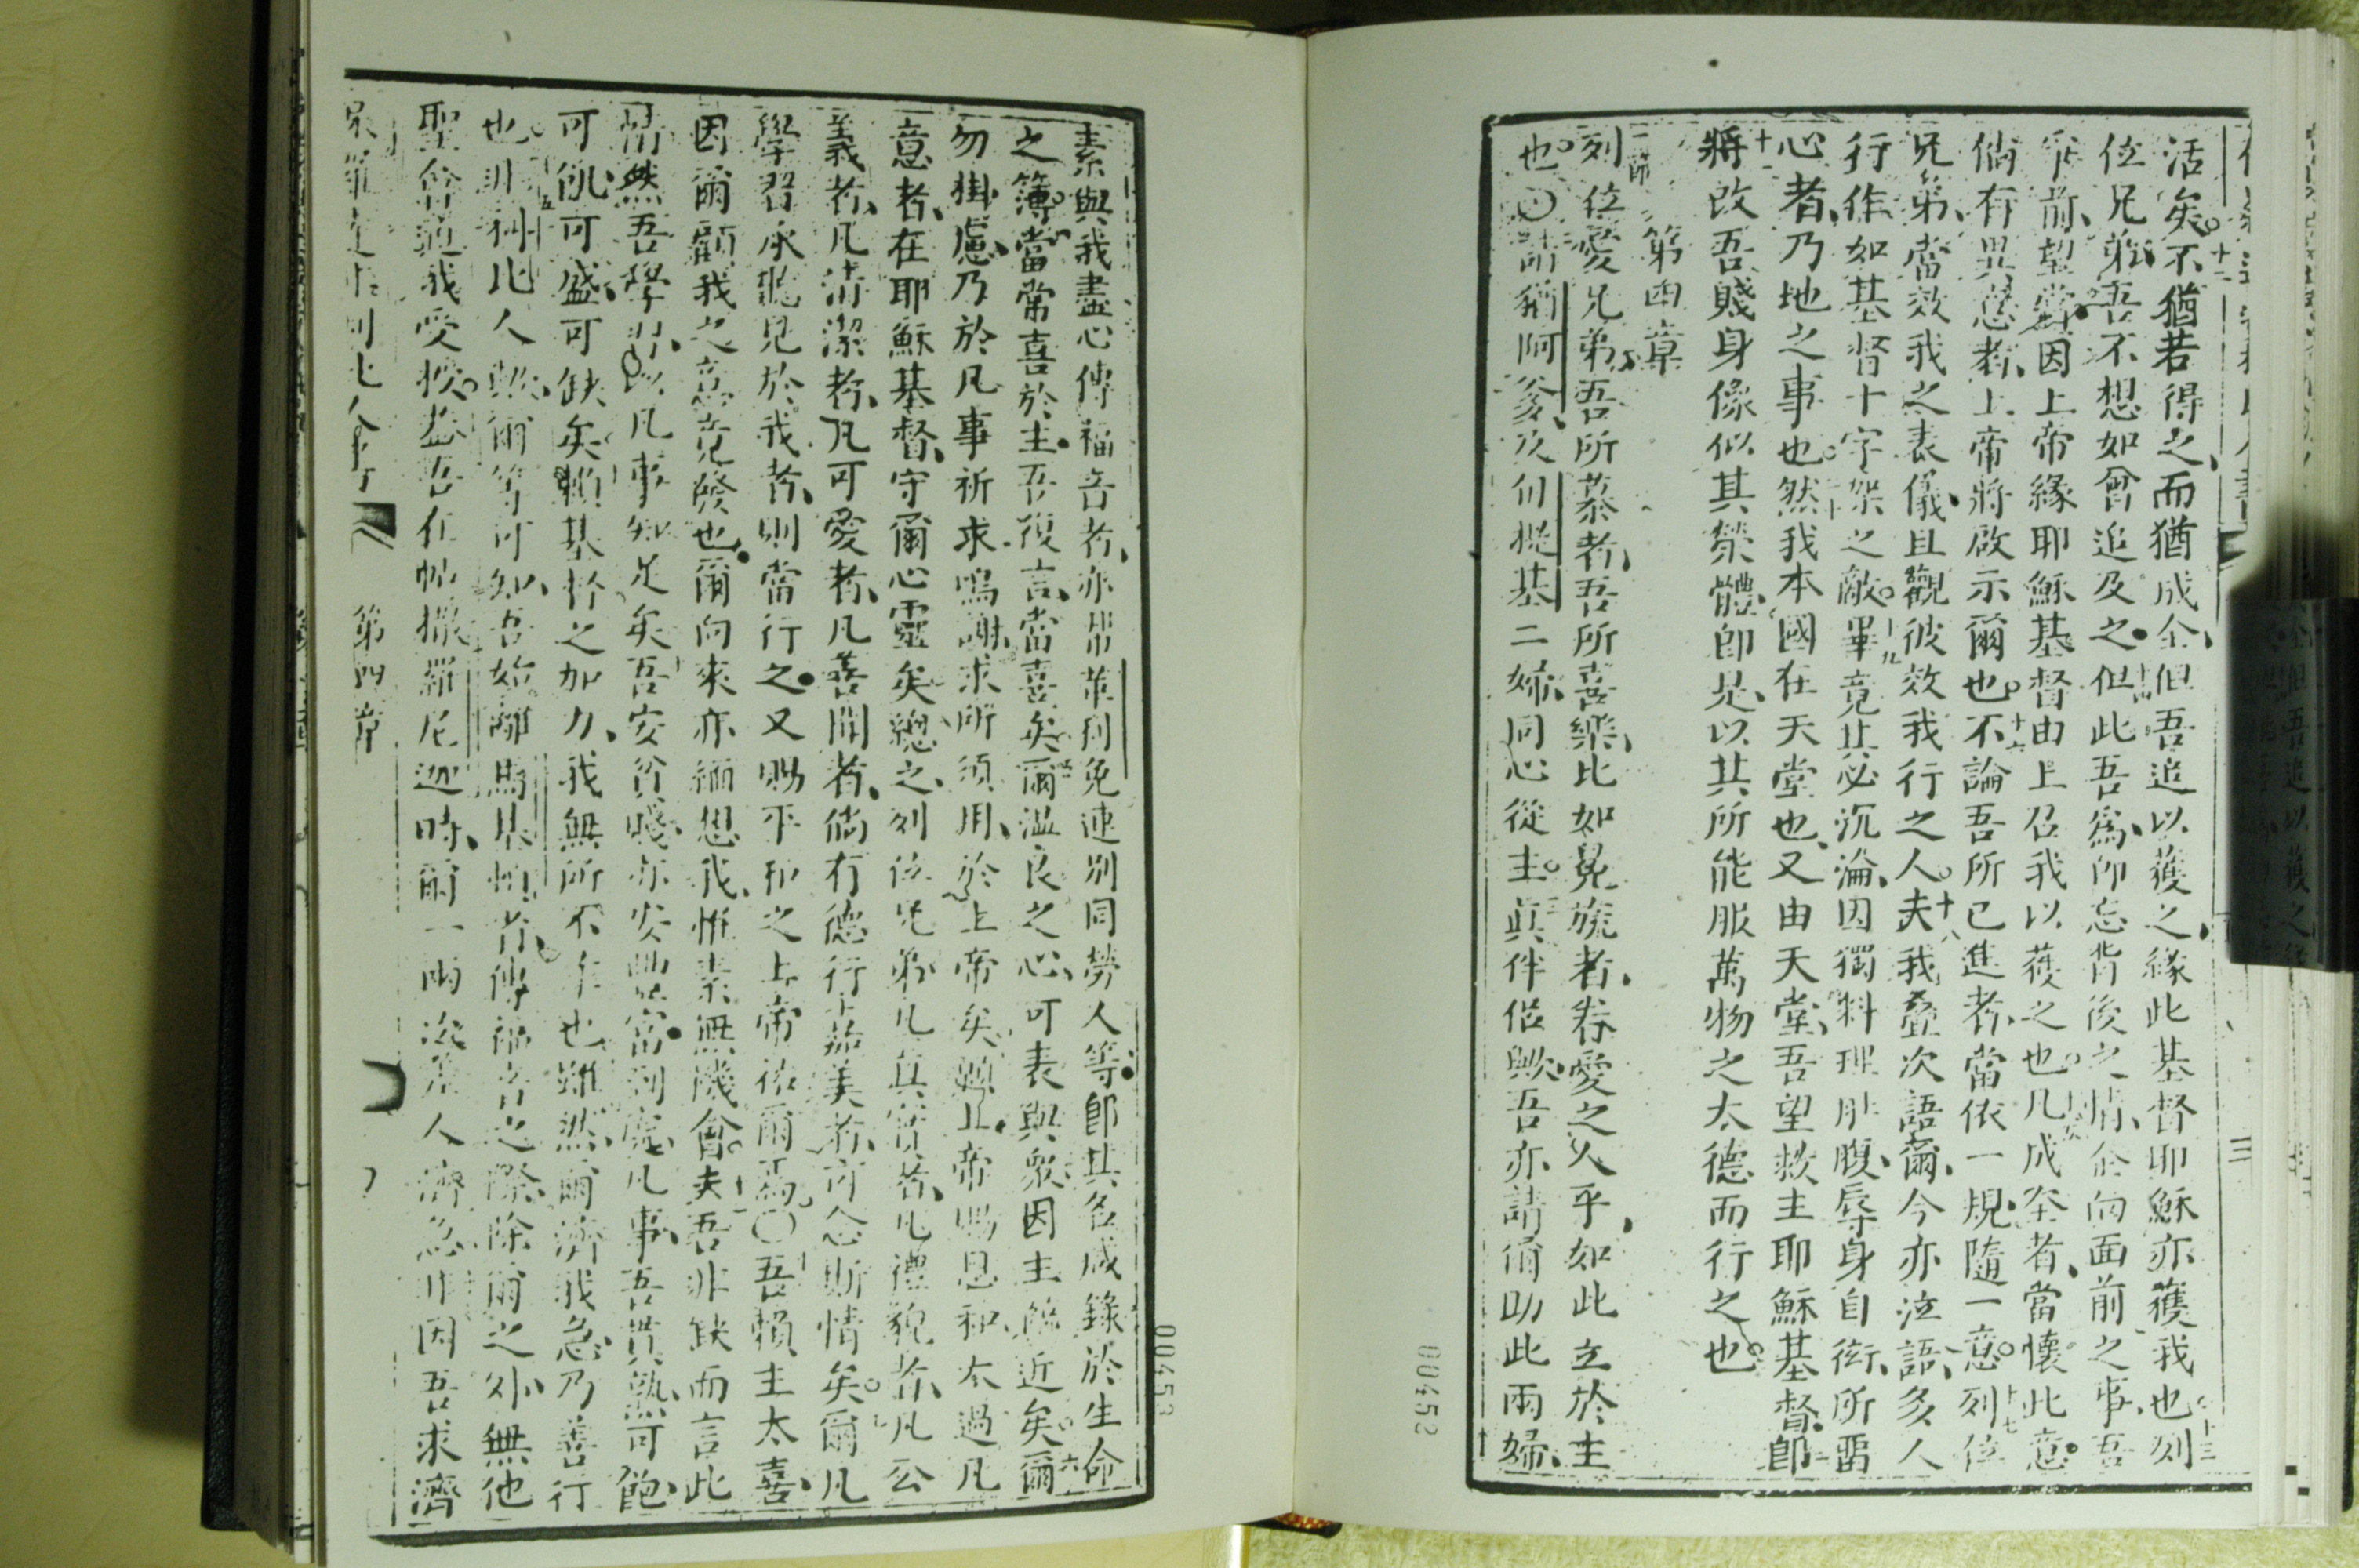 活矣不猶若得之而猶成全但吾追以獲之緣此基督耶穌亦獲我也列
位兄弟吾不想如曾追及之但此吾為即忘背後之情全向面前之事吾
乎前望當因上帝緣耶穌基督由上召我以獲之也凡成全者當懷此意
倘有異意者上帝將啟示爾也不論吾所已進者當依一規隨一意列位
兄弟當效我之表儀且觀彼效我行之人夫我疊次語爾今亦泣語多人
行作如基督十字架之敵畢竟其必沉淪因獨料理肚腹辱身自衒所畱
心者乃地之事也然我本國在天堂也又由天堂吾望救主耶穌基督即
將改吾賤身像似其榮體即是以其所能服萬物之太德而行之也
第四章
列位愛兄弟吾所慕者吾所喜樂比如晃旒者眷愛之人乎如此立於主
也〇請猶阿爹及何提基二婦同心從主眞伴侶歟吾亦請爾助此兩婦
00452
素與我盡心傳福音者亦幫革利免連別同勞人等即其名咸錄於生命
之簿當常喜於主吾復言當喜矣爾溫良之心可表與衆因主臨近矣爾
勿掛慮乃於凡事祈求鳴謝求所須用於上帝矣賴上帝賜恩和太過凡
意者在耶穌基督守爾心靈矣總之列位兄弟凡真實者凡禮貌者凡公
義者凡清潔者凡可愛者凡善聞者倘有德行 嘉美者可念斯情矣爾凡
學習承聽見於我者則當行之又賜平和之上帝祐爾焉〇吾賴主太喜
因爾顧我之意竟發也爾向來亦緬想我惟素無機會夫吾非缺而言此
情然吾學習以凡事知足矣吾安貧賤亦安豐富 到處凡事吾慣熟可飽
可飢可盛可缺矣賴基督之加力我無所不能也雖然爾濟我急乃善行
也非利比人歟爾等可知吾始離馬其頓者傳福音之際除爾之外無他
聖會與我受授葢吾在帖撒羅尼迦時爾一兩次着人濟急非因吾求濟
第四章
00453